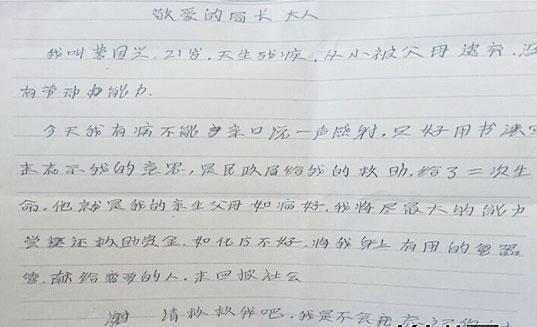 敬爱的局长大人
我叫 国兰,21岁,天生残疾,从小被父母遗弃,没
有劳动力能力.
今天我有病不能亲口说一声感射,只好用书
来表示我的意思,是民政局给我的救助,给了二次生
命.他就是我的亲生父母如病好,我将尽最大的能力
还救助资金.如化疗不好,将我身上有用的器
官,献给需要的人.来回报社会
谢 请救救我吧,我是不会